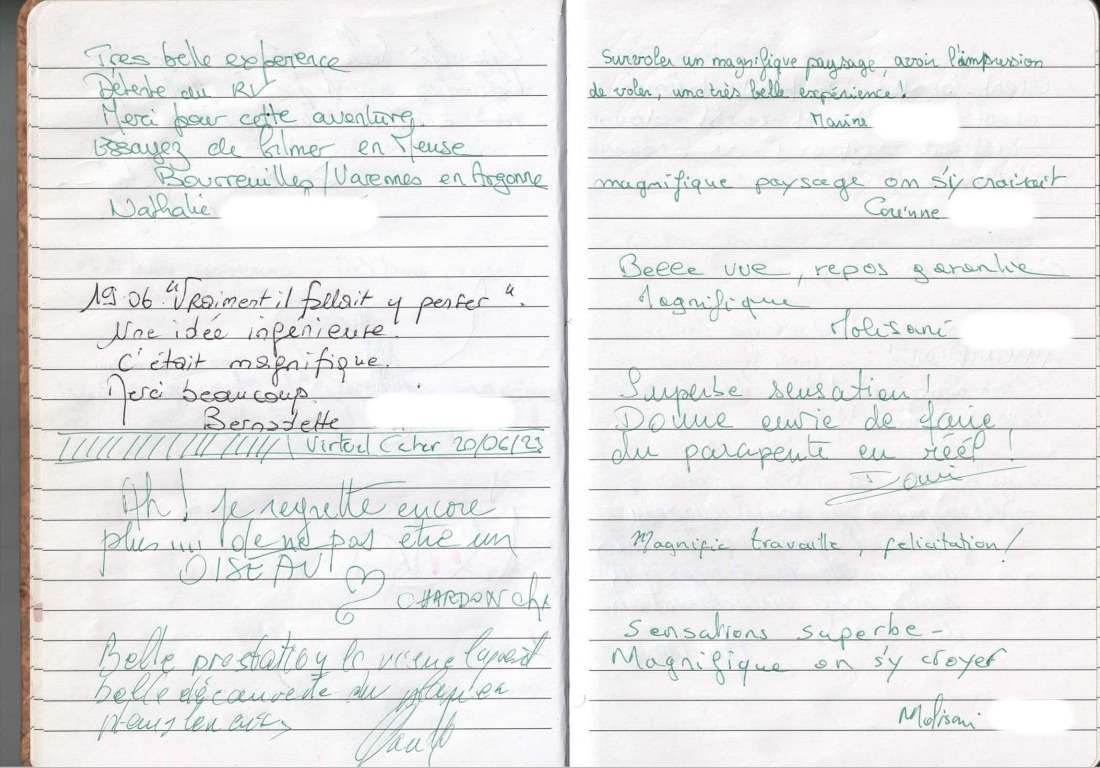 Très belle experience
Détente au RV
Merci pour cette aventure.
Essayez de filmer en Meuse
Boureuilles / Varennes en Argonne
Nathalie
19.06 "Vraiment il fallait y penser".
Une idée ingénieuse.
C'était magnifique
Merci beaucoup.
Bernadette
Virtuel 20/06/23
Ah ! je regrette encore
plus .... de ne pas être un
OISEAU
CHARDON Ch
Belle prestation
belle découverte du
dans les airs
Survoler un magnifique paysage, avoir l'impression
de voler, une très belle expérience !
Marine
magnifique paysage on s'y croirait
Corinne
Belle vue, repos garantie
Magnifique
Molisani
Superbe sensation !
Donne envie de faire
du parapente en réél !
Magnific travaille, felicitation !
Sensations superbe -
Magnifique on s'y croyer
Molisani